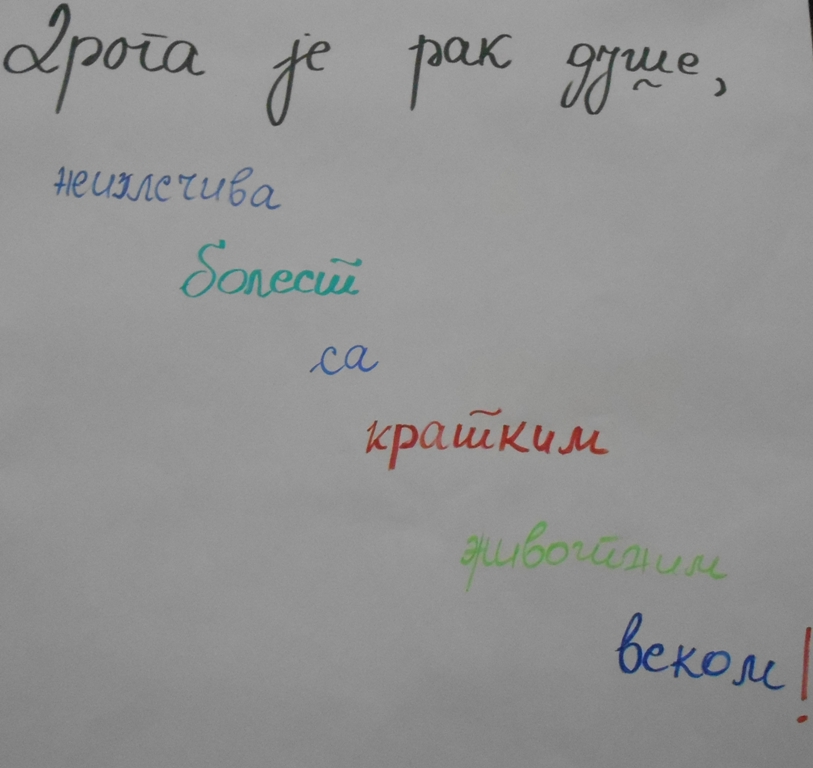 Дрога је рак душе,
неизлечива
болест
са
кратким
животним
веком!